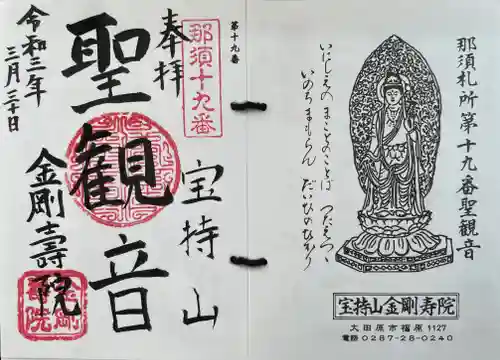 第十九番
奉拝
那須十九番
宝持山
聖観音
令和三年
三月三十日
金剛壽院
金剛
壽院
那須札所第十九番聖観音
いにしえの まことのことば つたえつゝ
いのちまもらん だいひのひかり
宝持山金剛寿院
大田原市福原1127
電話0287-28-0240